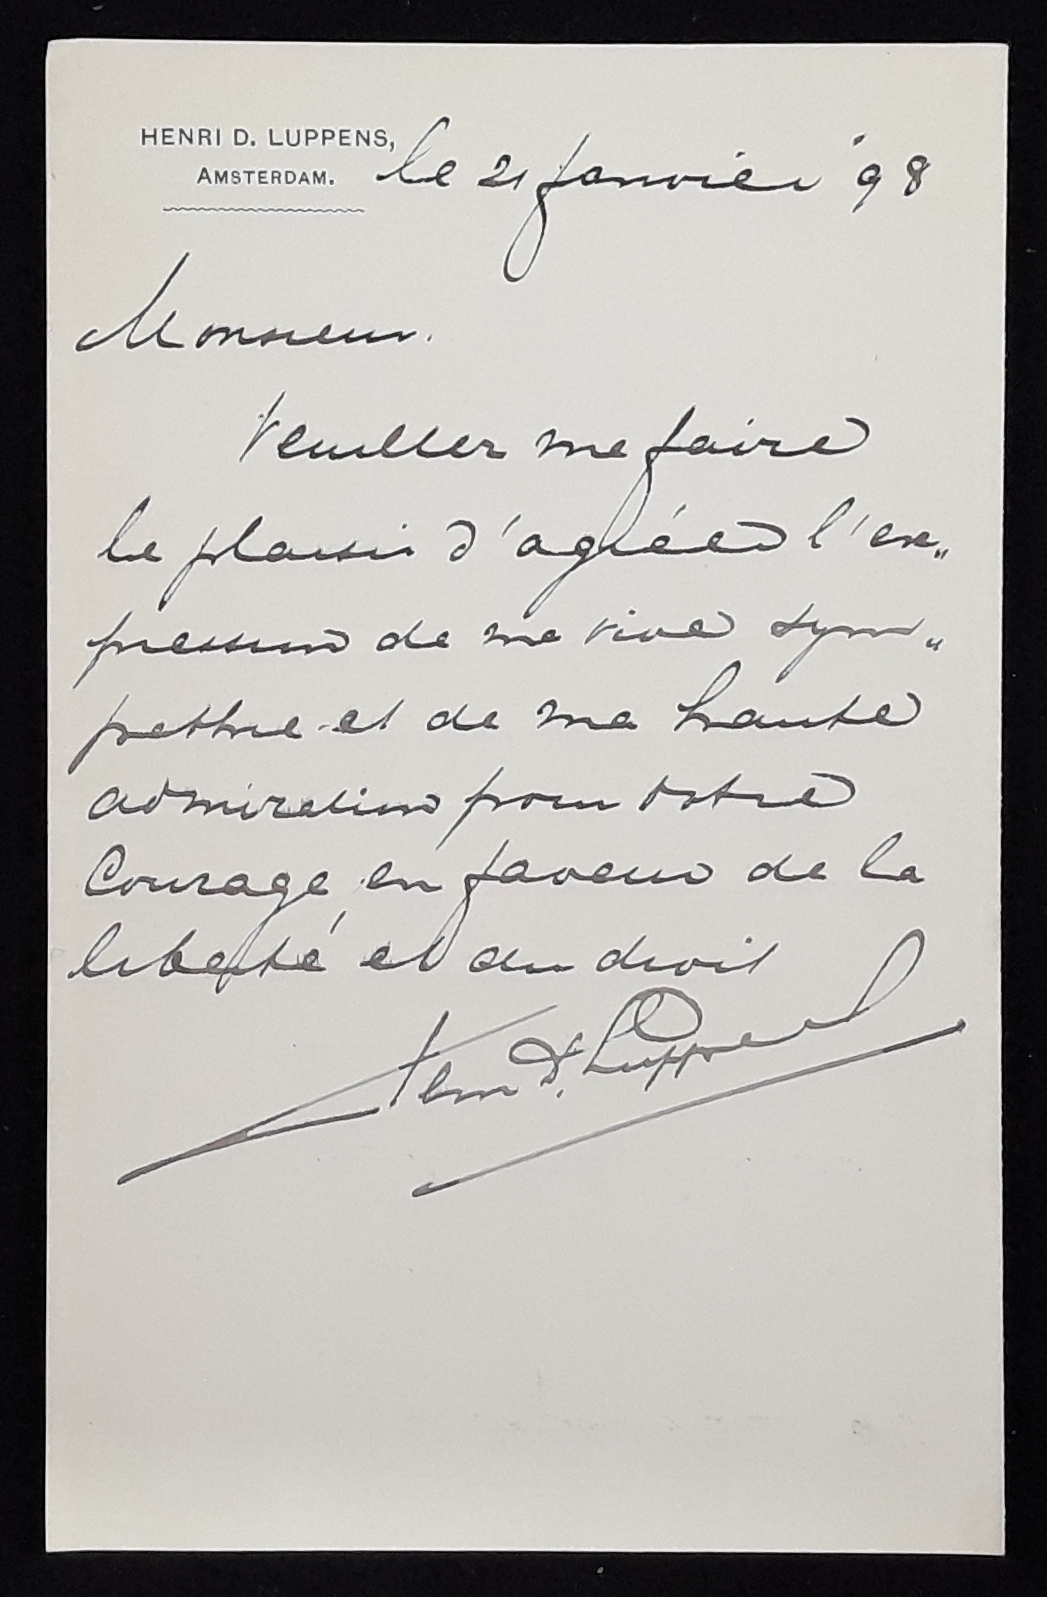 HENRI D. LUPPENS,
AMSTERDAM.
le 21 janvier '98
Monsieur.
Veuillez me faire
le plaisir d'agréer l'ex„
pression de ma vive sym„
pathie et de ma haute
admiration pour votre
Courage en faveur de la
liberté et du droit
Henri D. Luppens